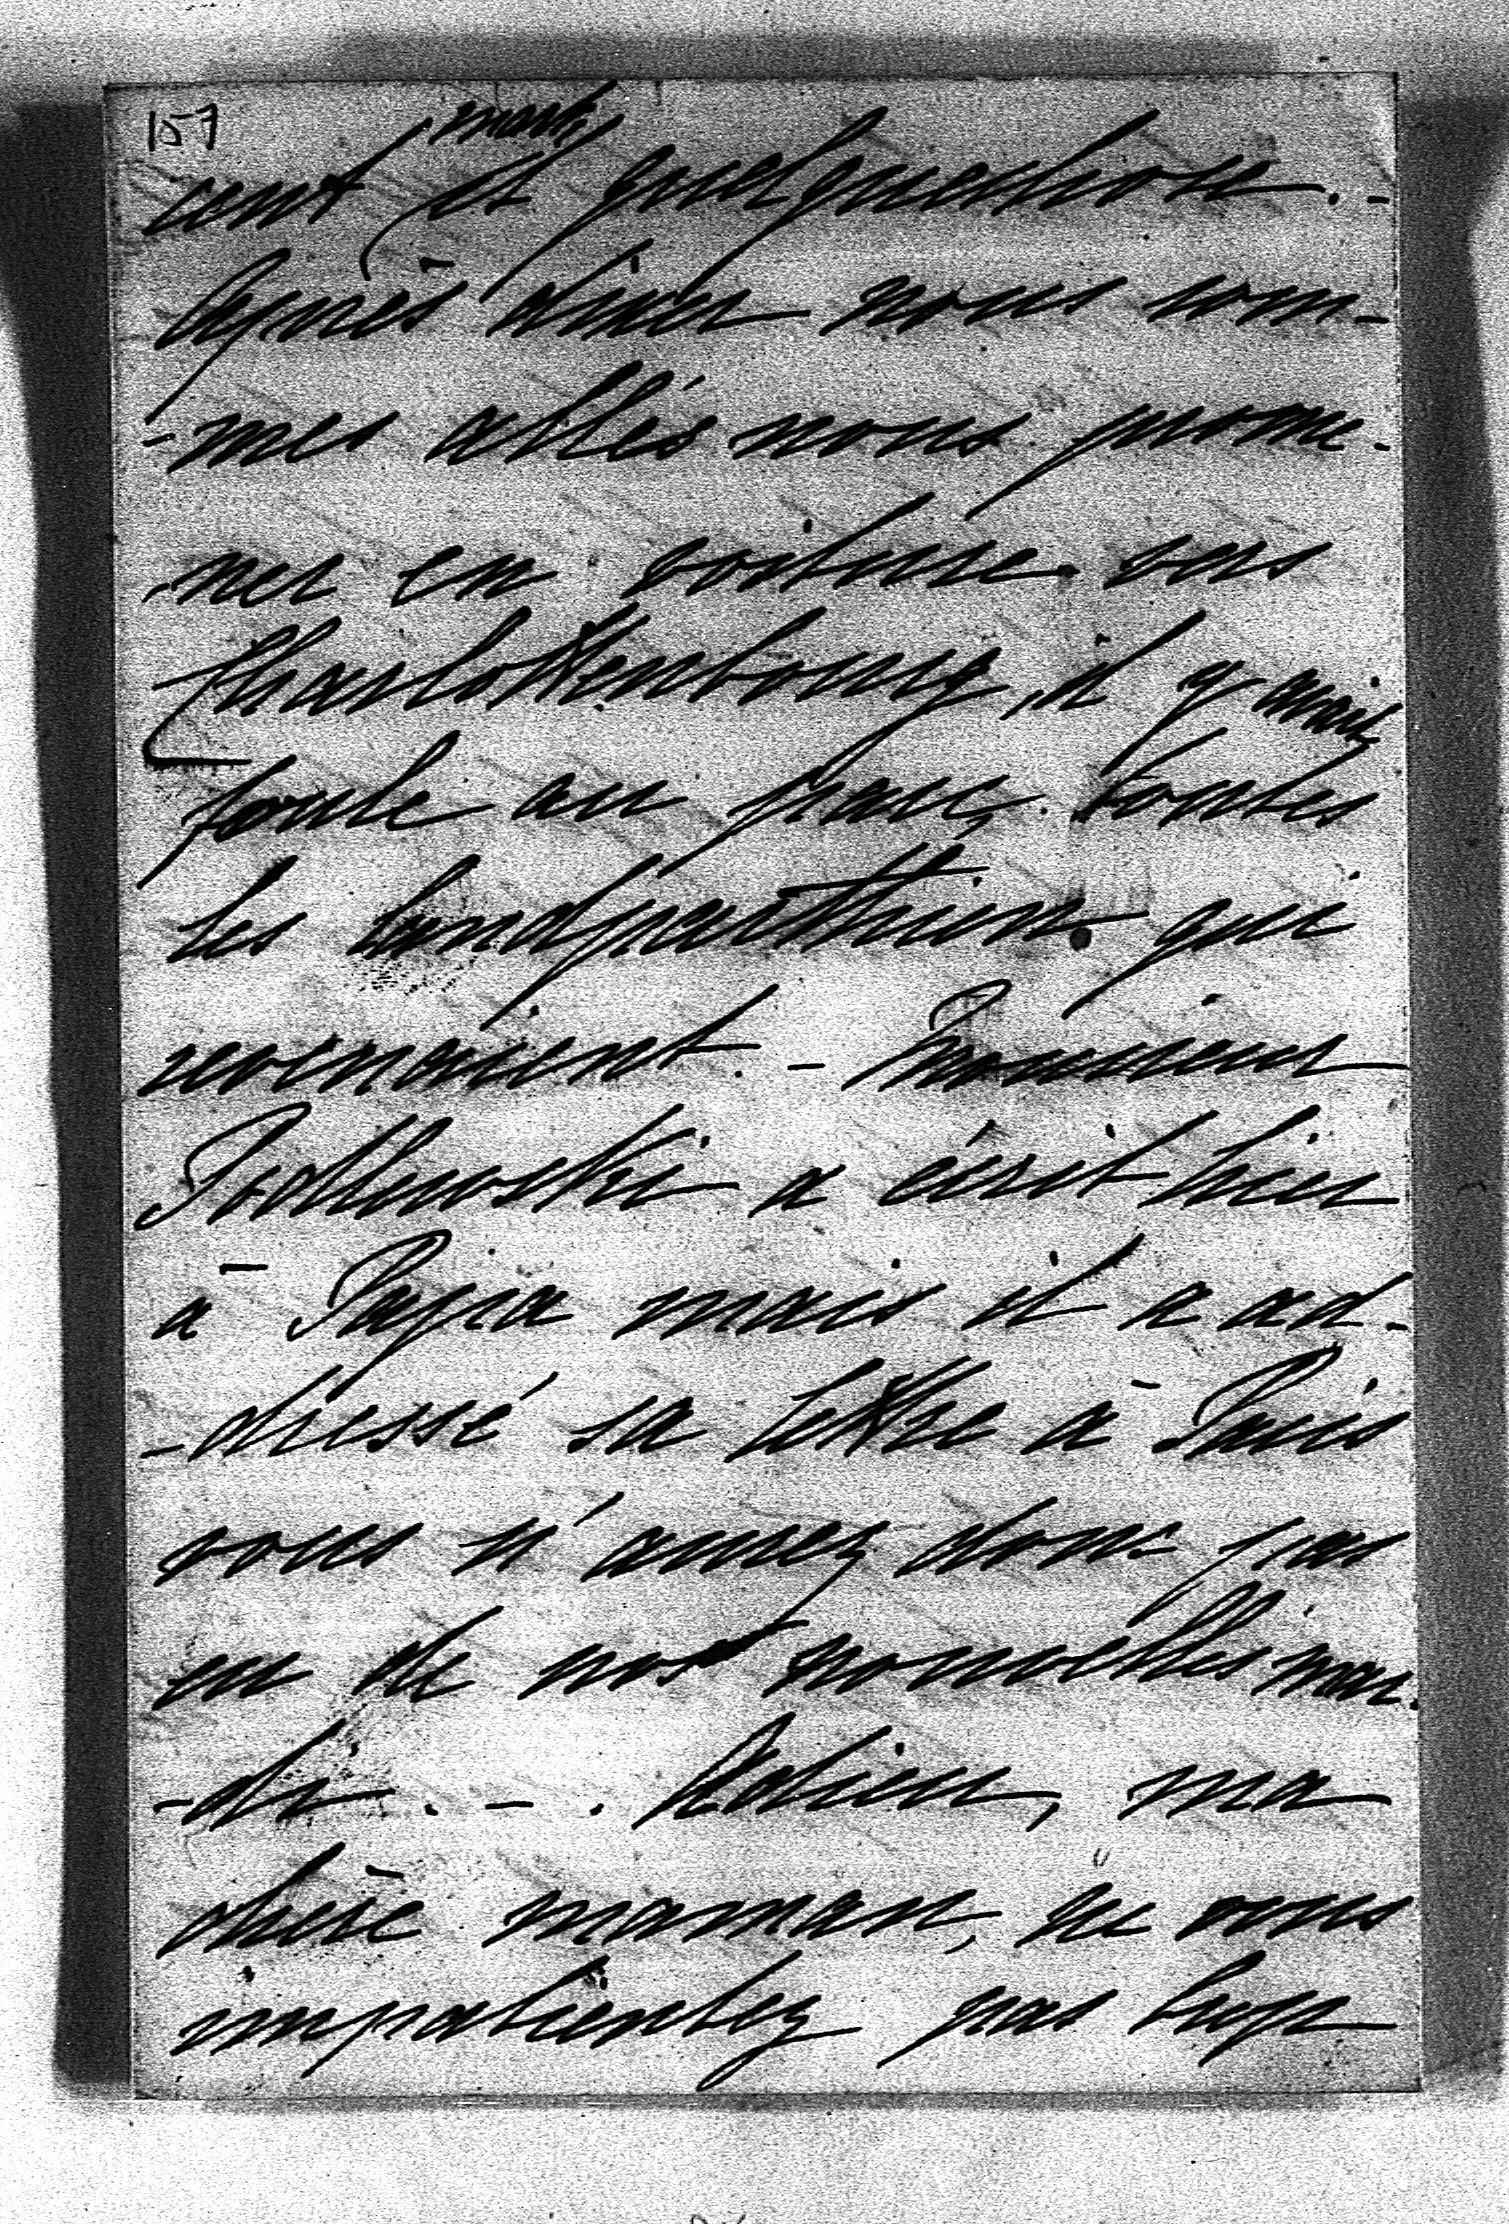 157
mark
cent et quelquechose. -
Après diner nous som-
-mes allés nous prome-
-ner en voiture vers
Charlottenbourg, il y avait
foule au parc. Toutes
les landparthien qui
revenaient. - Monsieur
a écrit hier
à Papa mais il a ad-
-dressé sa lettre à Paris
vous n'aurez donc pas
eu de nos nouvelles mar-
-di. - . Adieu, ma
chère maman, ne vous
impatientez pas trop